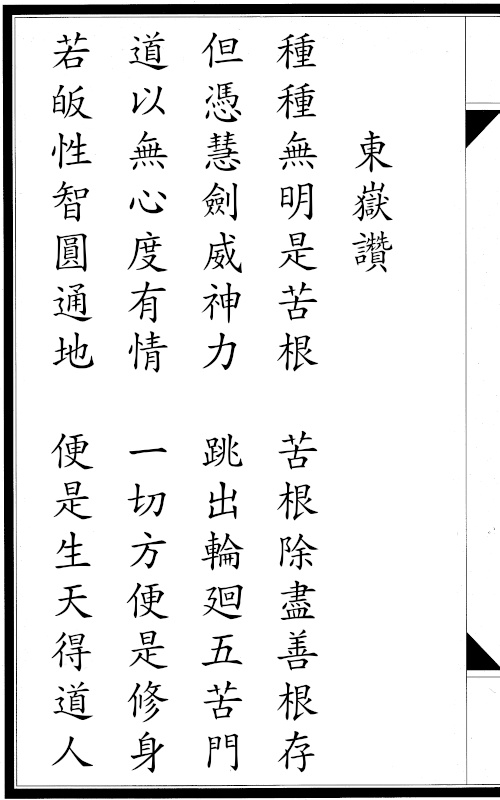 東嶽讚
種種無明是苦根　苦根除盡善根存
但憑慧劍威神力　跳出輪廻五苦門
道以無心度有情　一切方便是修身
若皈性智圓通地　便是生天得道人